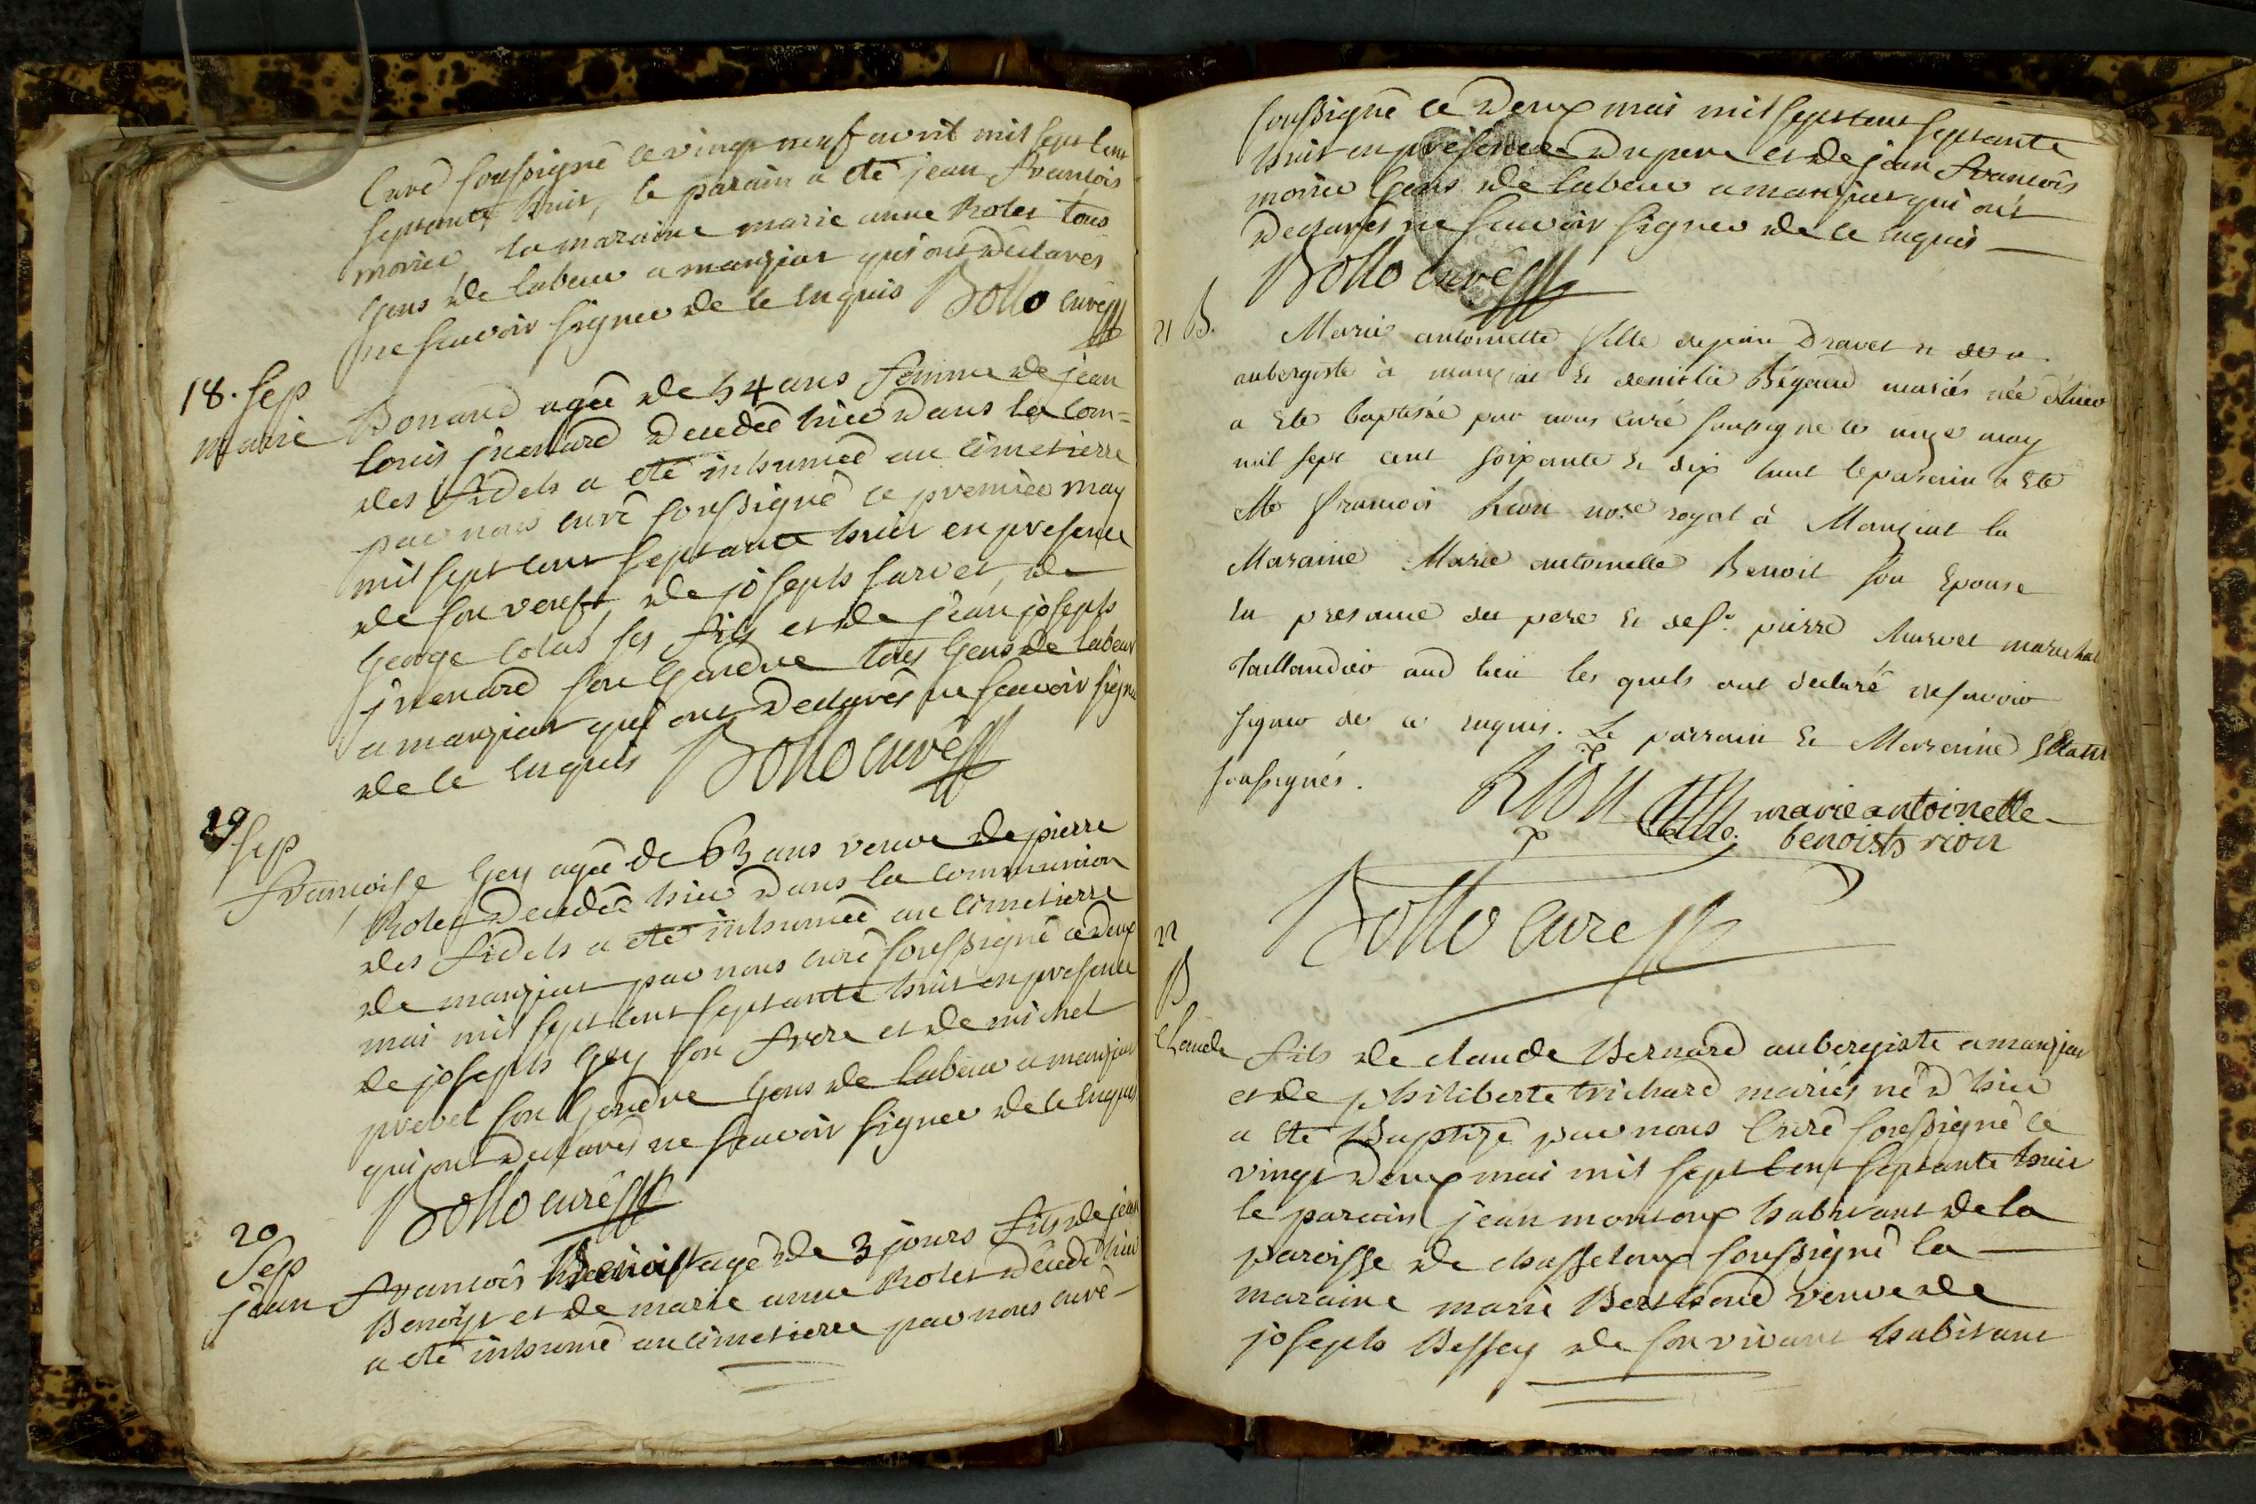 Curé soussigné ce vingt neuf avril mil sept cent
septante huit, le parain a été jean francois
morier la maraine marie anne Rolet tous
gens de labeur a manziat qui ont déclarés
ne scavoir signer de ce enquis Bollo curé
18. sep
marie Bonard agée de 54 ans femme de jean
louis jvenard decedée hier dans la com=
des fidels a été inhumée au cimetierre
par nous curé soussigné ce premier may
mil sept cent septante huit en presence
de son veuf, de joseph farvet, de
George Colas ses fils et de jean joseph
jvenard son Gendre tous Gens de labeur
a manziat qui ont declarés ne scavoir signe
de ce enquis Bollo curé
19
sep
francoise Gey agée de 63 ans veuve de pierre
Rolet decedée hier dans la communion
des fidels a été inhumée au cimetierre
de manziat par nous curé soussigné ce deux
mai mil sept cent septante huit en presence
de joseph Gey son frere et de michel
prevel son Gendre Gens de labeur a manziat
qui ont declarés ne scavoir signer de ce enquis
Bollo curé
20
Sep
jean francois Benoist agé de 3 jours fils de jean
Benoist et de marie anne Rolet decedé hier
a été inhumé au cimetierre par nous curé
soussigné ce deux mai mil sept cent septante
huit en présence du pere et de jean francois
morier Gens de labeur a manziat qui ont
declarés ne scavoir signer de ce enquis
Bollo curé
21 B.
Marie antoinette fille de Dravet
aubergiste à manziat & Bégaud mariés née d'hier
a Ete baptisée par nous curé soussigné ce onze may
mil sept cent soixante & dix huit le parain a Ete
Me francois Rion nore royal à Manziat la
Maraine Marie antoinette Benoit son Epouse
En presance du pere & de sr pierre marechal
Taillandier aud lieu les quels ont declaré ne savoir
signer de ce enquis. Le parrain & Marraine s'étant
soussignés.
Rion marie antoinette
benoists rion
Bollo Curé
22
B
Claude fils de claude Bernard aubergiste a manziat
et de philiberte trichard mariés né d'hier
a été Baptizé par nous Curé soussigné le
vingt deux mai mil sept cent septante huit
le parain jean montoux habitant de la
paroisse de chasseloux soussigné la
maraine marie Berthoud veuve de
joseph Bessey de son vivant habitant